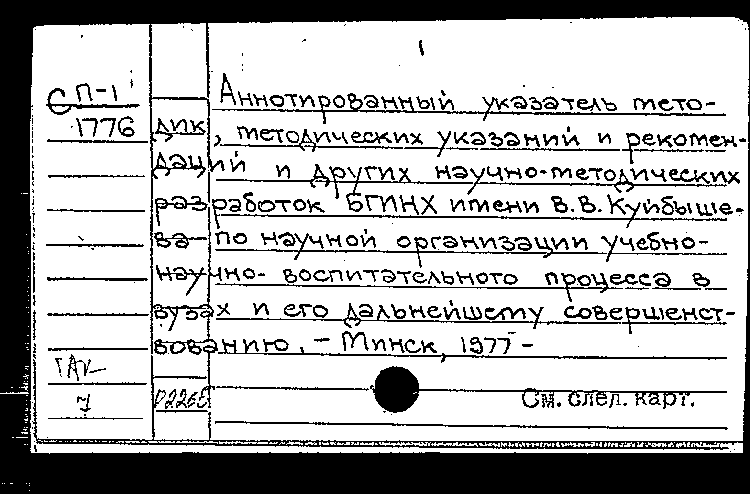 1
С П-1
1776
Аннотированный указатель мето-
дик, методических указаний и рекомен-
даций и других научно-методических
разработок БГИНХ имени В.В. Куйбыше-
ва по научной организации учебно-
научно-воспитательного процесса в
вузах и его дальнейшему совершенст-
вованию. - Минск, 1977 -
7
См. след. карт.